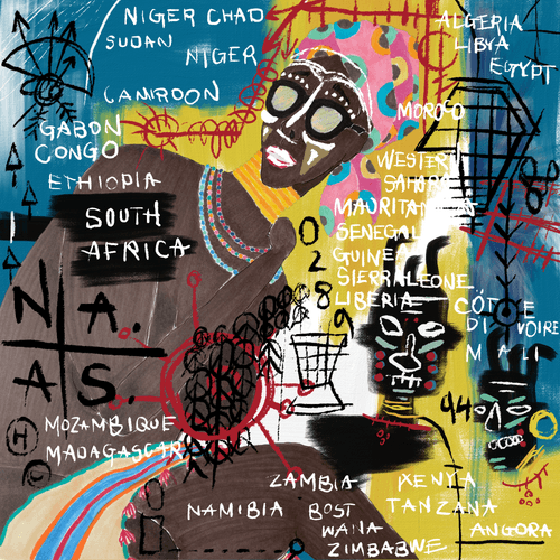 NIGER CHAD
SUDAN
NIGER
CAMROON
GABON
CONGO
ETHIOPIA
SOUTH
AFRICA
ALGERIA
LIBYA
EGYPT
MOROCO
WESTERN
SAHARA
MAURITANIA
SENEGAL
GUINEA
SIERRALEONE
LIBERIA
CÔTE
DI VOIRE
MALI
0
2
8
9
N A.
A S.
44
MOZAMBIQUE
MADAGASCAR
H
©
ZAMBIA
NAMIBIA
BOST
WANA
ZIMBABWE
KENIA
TANZANA
ANGORA